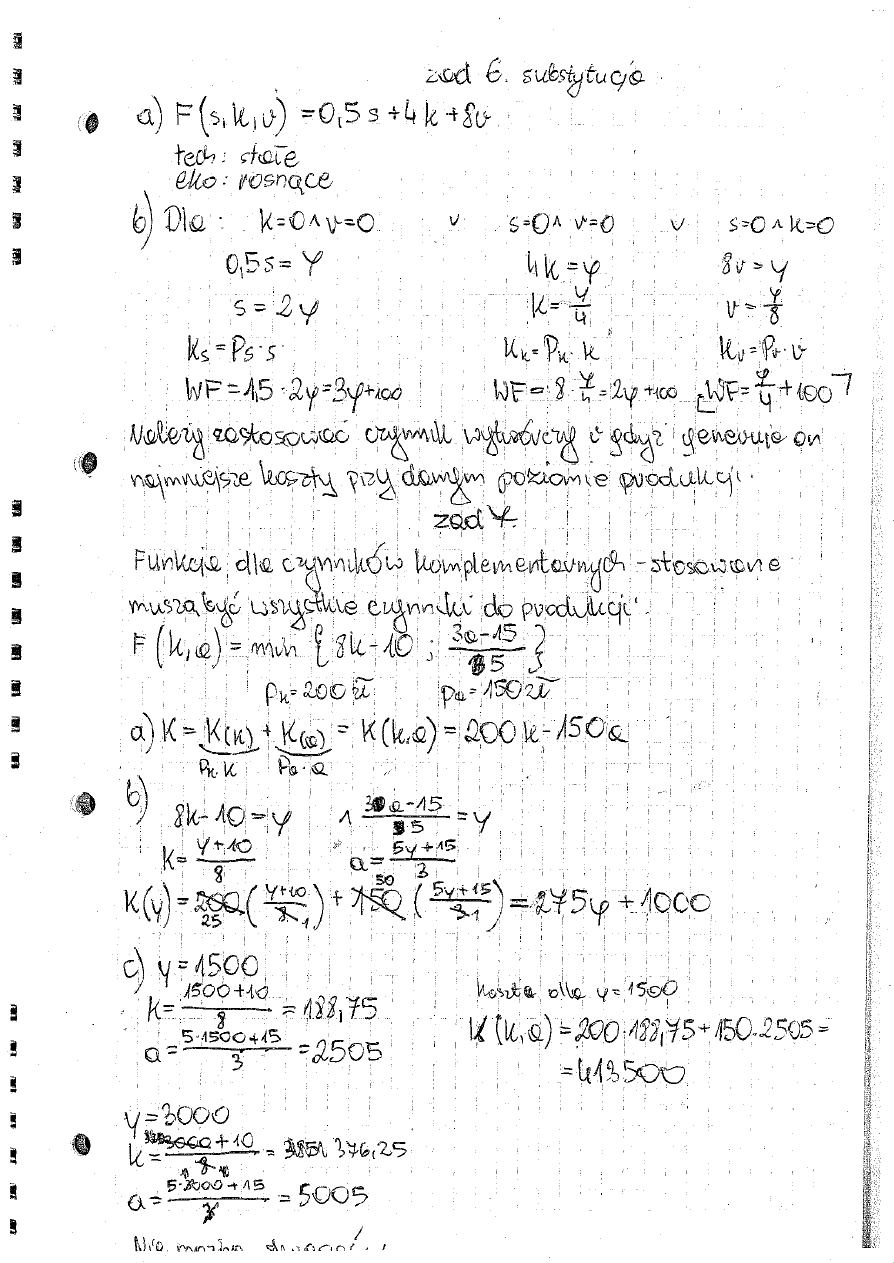 zad 6. substytucja
a) F(s,k,v) = 0,5s+4k+8v
tech: stałe
eko: rosnące
b) Dla: k=0 ∧ v=0 ∨ s=0 ∧ v=0 ∨ s=0 ∧ k=0
0,5s = y 4k = y 8v = y
s = 2y k = y/4 v = y/8
Ks = Ps·s Kk = Pk·k Kv = Pv·v
WF = 1,5·2y = 3y+100 WF = 8·y/4 = 2y+100 WF = y/4 + 100
Należy zastosować czynnik wytwórczy v gdyż generuje on
najmniejsze koszty przy danym poziomie produkcji.
zad 7.
Funkcja dla czynników komplementarnych - stosowane
muszą być wszystkie czynniki do produkcji.
F(k,a) = min { 8k-10 ; (3a-15)/5 }
Pk = 200zł Pa = 150zł
a) K = K(k) + K(a) = K(k,a) = 200k - 150a
Pk·k Pa·a
b) 8k-10 = y ∧ (3a-15)/5 = y
k = (y+10)/8 a = (5y+15)/3
K(y) = 200 25 ((y+10)/8 1) + 150 50 ((5y+15)/3 1) = 275y + 1000
c) y = 1500
k = (1500+10)/8 = 188,75 koszta dla y = 1500
a = (5·1500+15)/3 = 2505 K(k,a) = 200·188,75 + 150·2505 =
= 413500
y = 3000
k = (3000+10)/8 = 376,25
a = (5·3000+15)/3 = 5005
Nie można